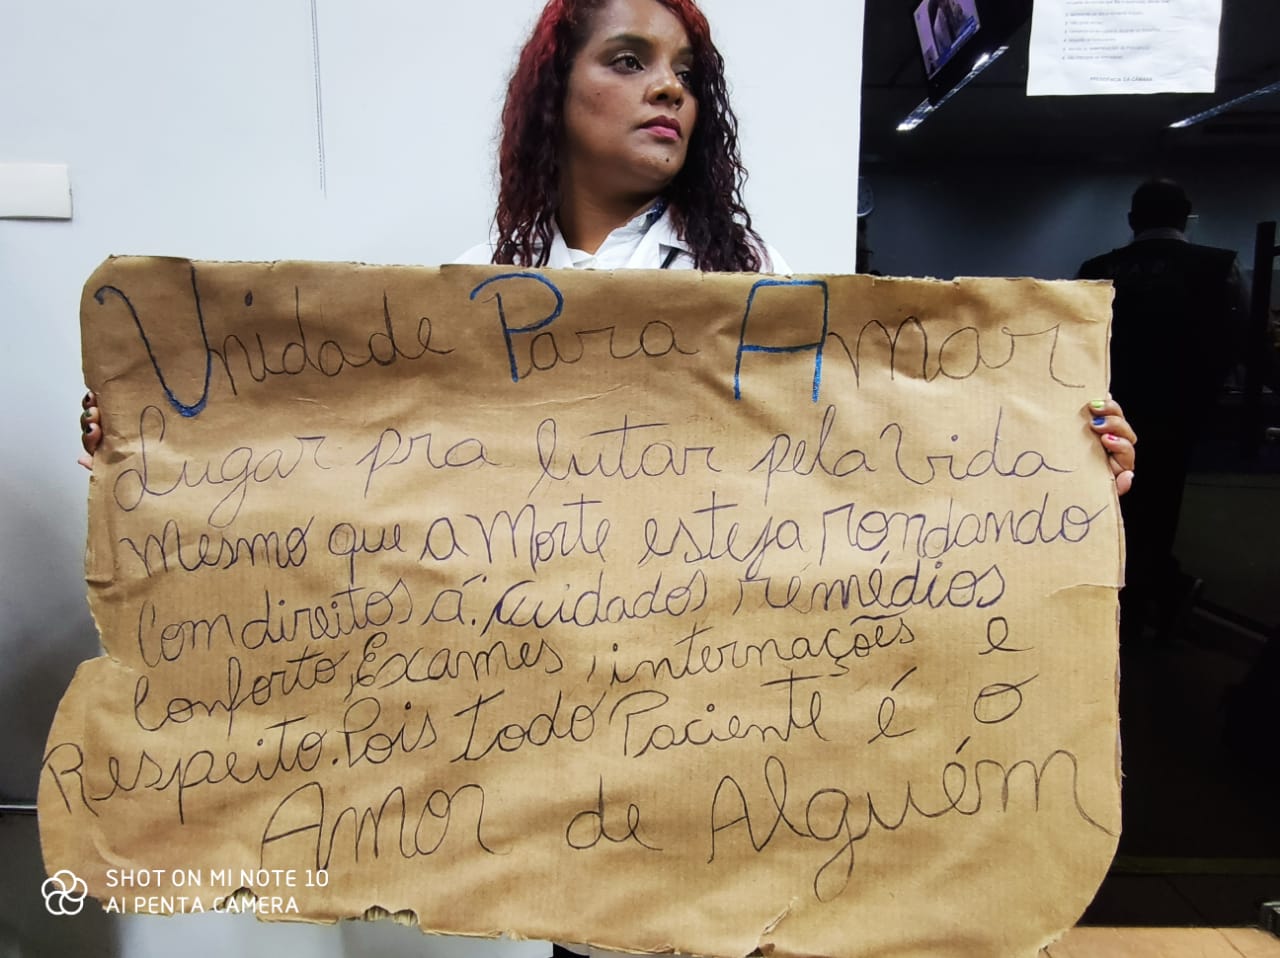 Unidade Para Amar
Lugar pra lutar pela Vida
mesmo que a Morte esteja rondando
Com direitos á: Cuidados, remédios
Conforto, Exames, internações e
Respeito. Pois todo Paciente é o
Amor de Alguém
PRESIDÊNCIA DA CÂMARA
SHOT ON MI NOTE 10
AI PENTA CAMERA